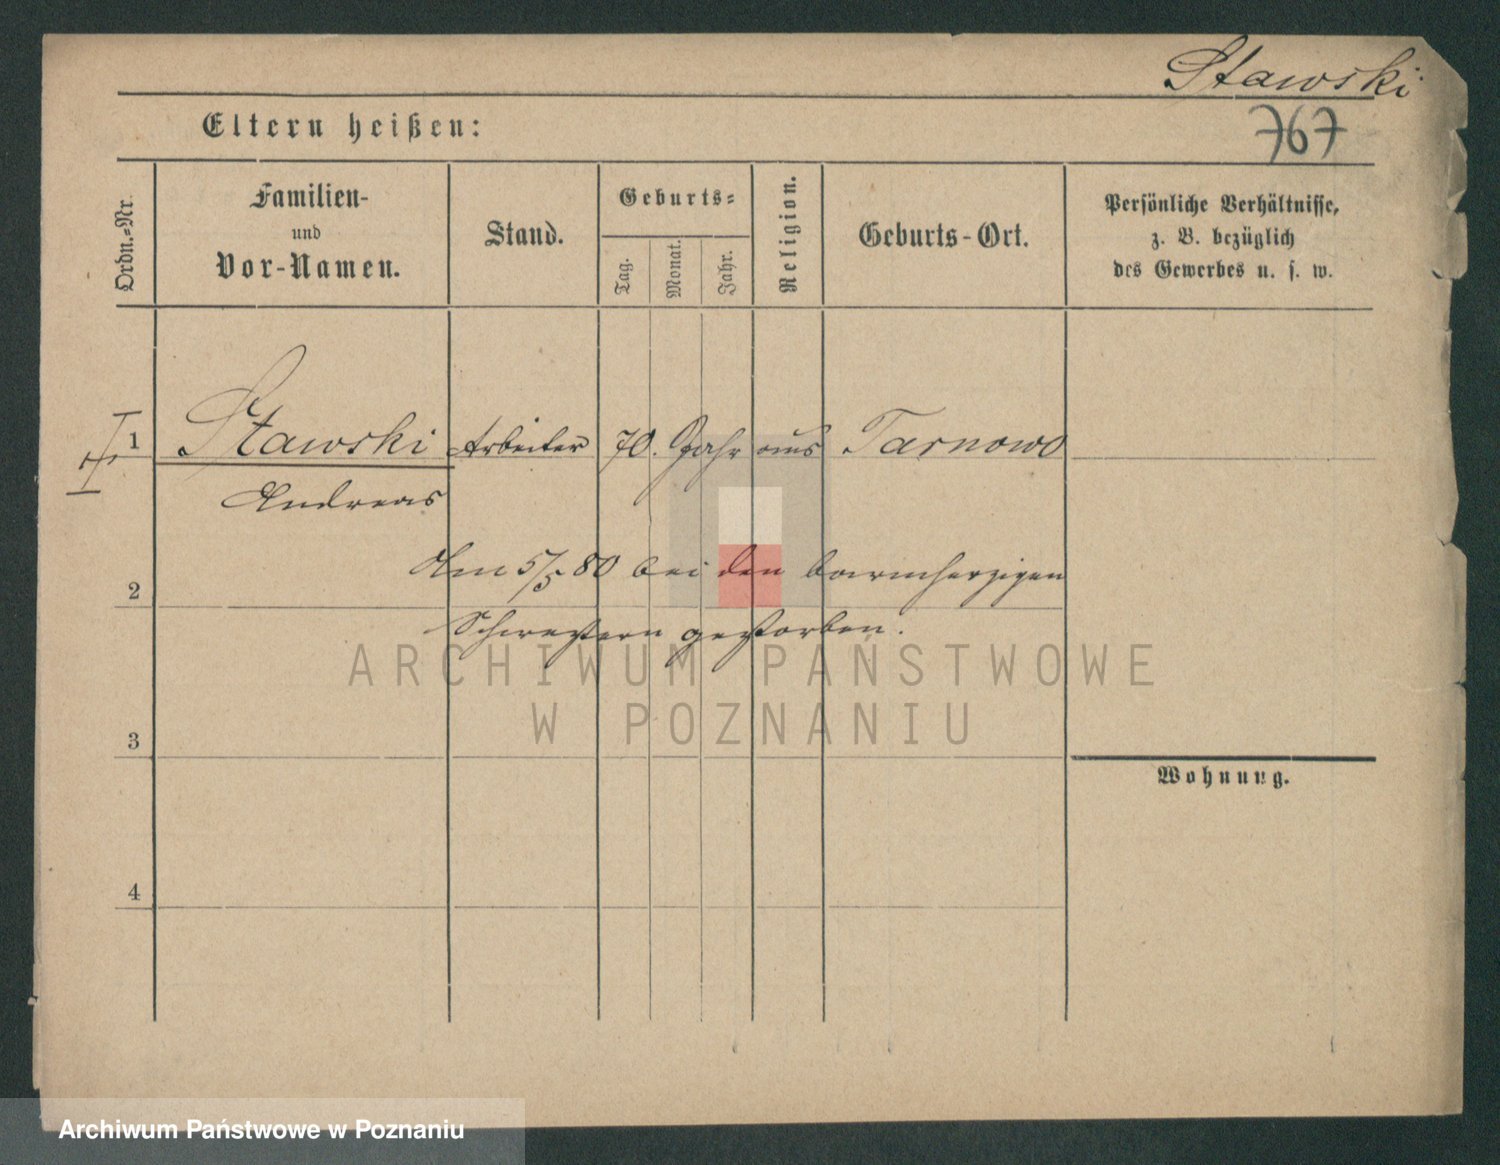 Stawski
767
Eltern heißen:
Ordn.-Nr.
Familien-
und
Vor-Namen.
Stand.
Geburts-
Tag.
Monat.
Jahr.
Religion.
Geburts-Ort.
Persönliche Verhältnisse,
z. B. bezüglich
des Gewerbes u. s. w.
1 Stawski Arbeiter 70. Jahr aus Tarnowo
Andreas
Am 5/5 80 bei den barmherzigen
2
Schwestern gestorben.
ARCHIWUM PAŃSTWOWE
W POZNANIU
3
Wohnung.
4
Archiwum Państwowe w Poznaniu